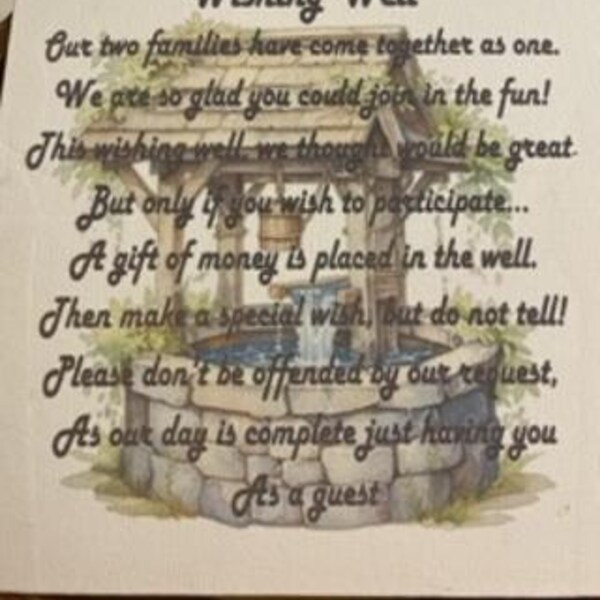 Wishing Well
Our two families have come together as one.
We are so glad you could join in the fun!
This wishing well, we thought would be great
But only if you wish to participate...
A gift of money is placed in the well.
Then make a special wish, but do not tell!
Please don't be offended by our request,
As our day is complete just having you
As a guest